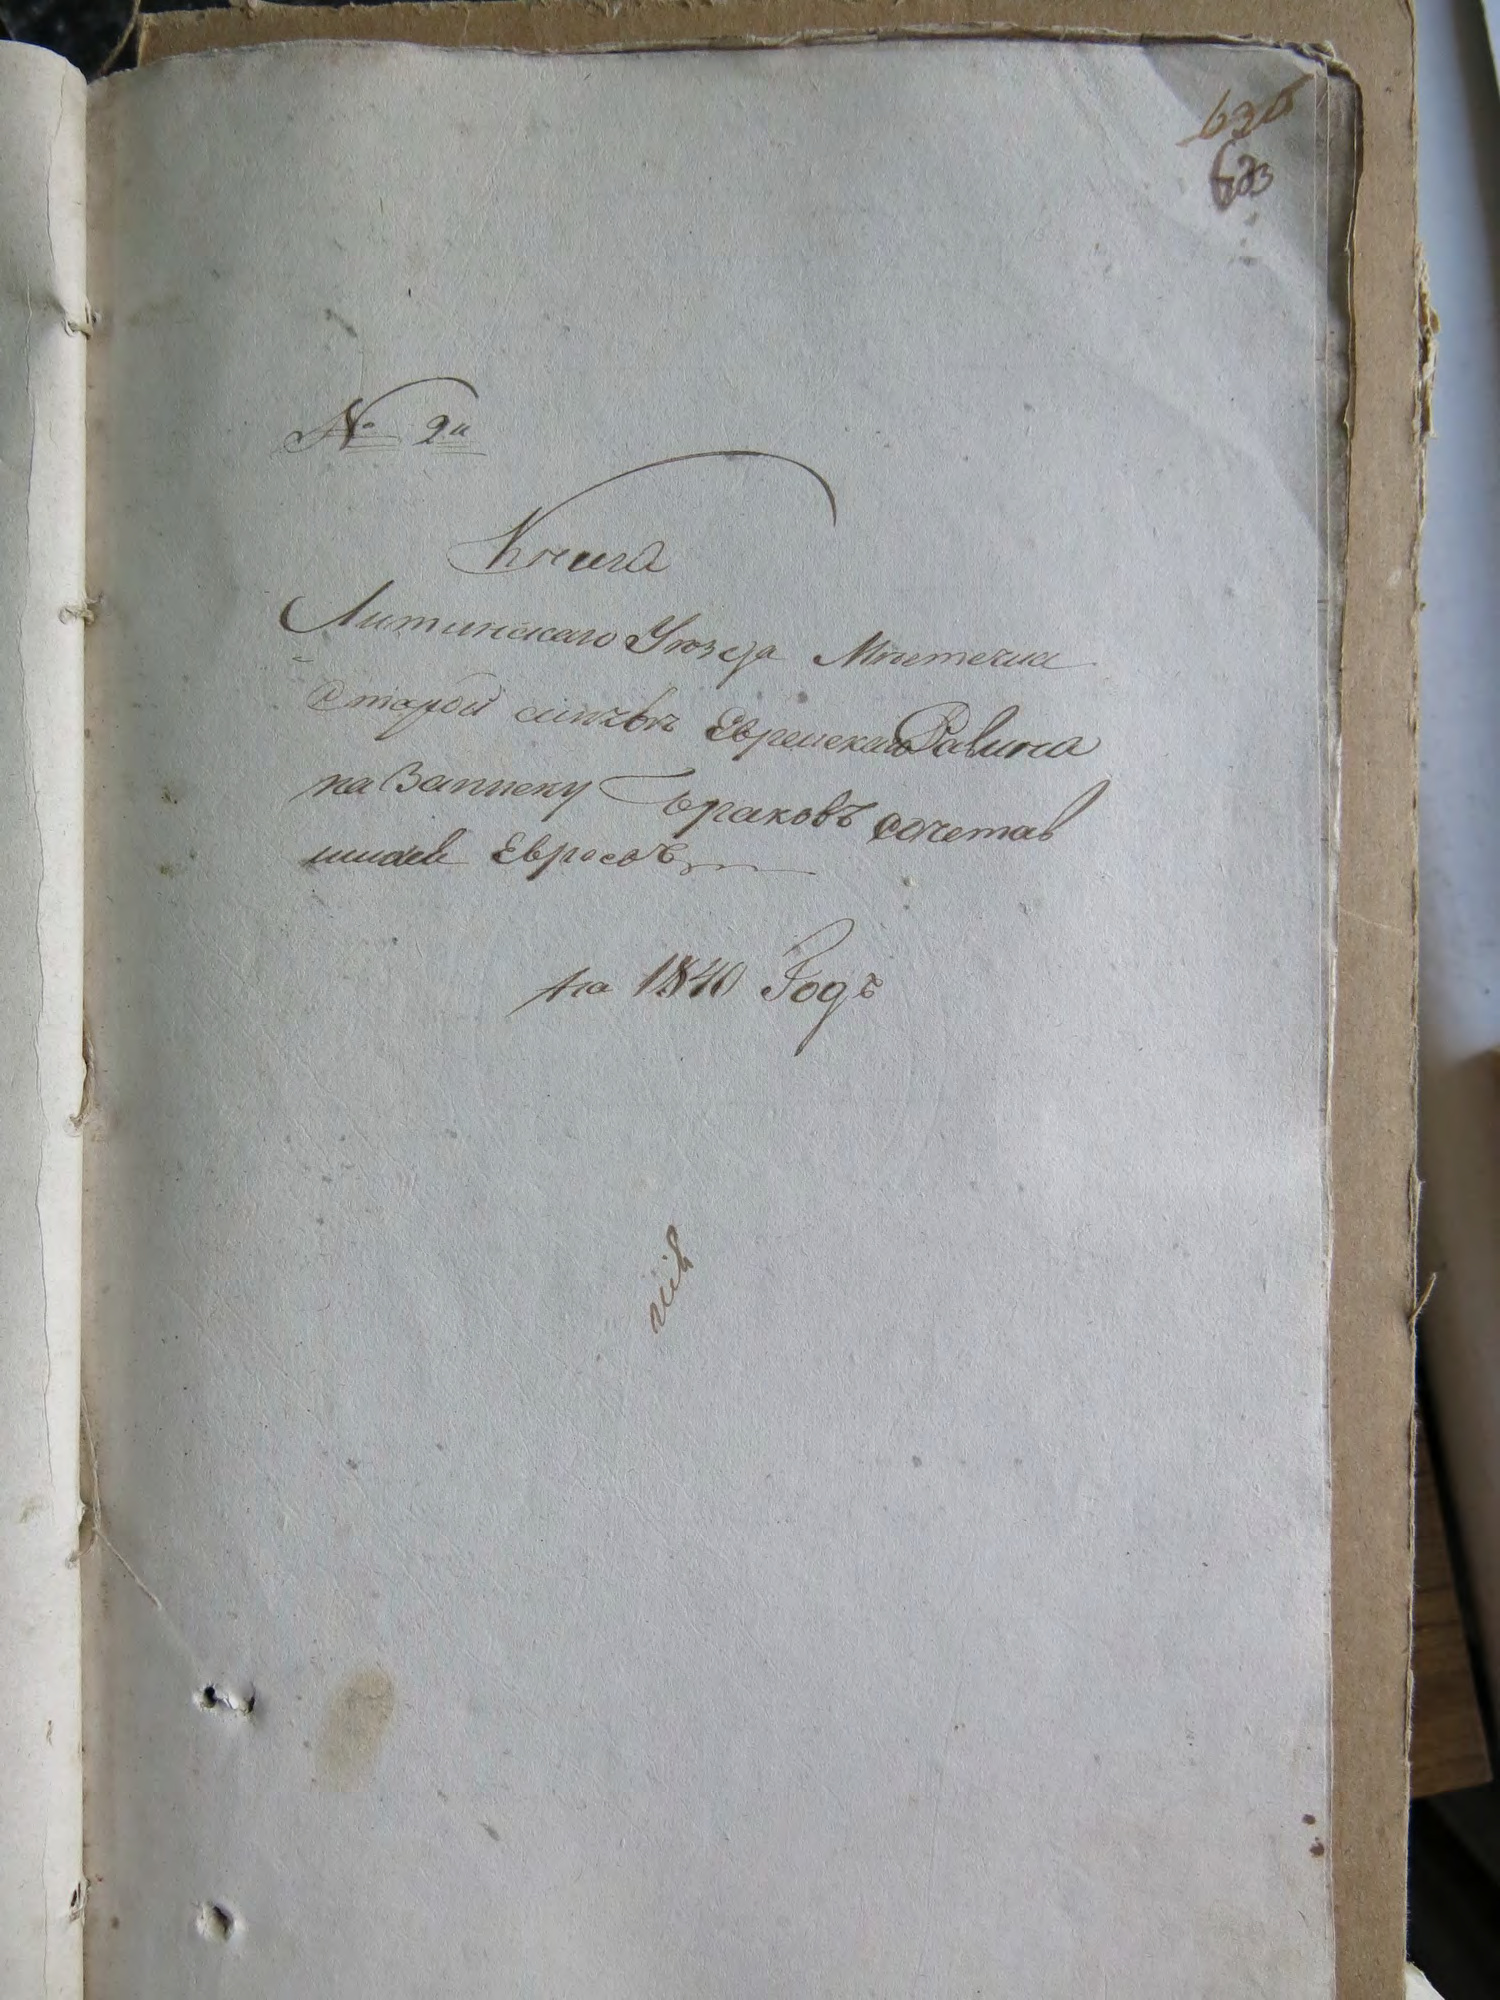 623
№ 2й
Книга
Литинскаго Уюзда Мистечка
Старой Еврейскаго Равина
на Записку Браковъ сочетав
шихся Евреовъ
на 1840 Годъ